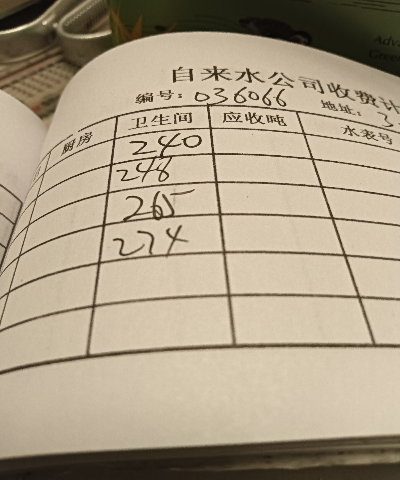 自来水公司收费计
编号：036066 地址：3
厨房 卫生间 应收吨 水表号
240
248
265
274